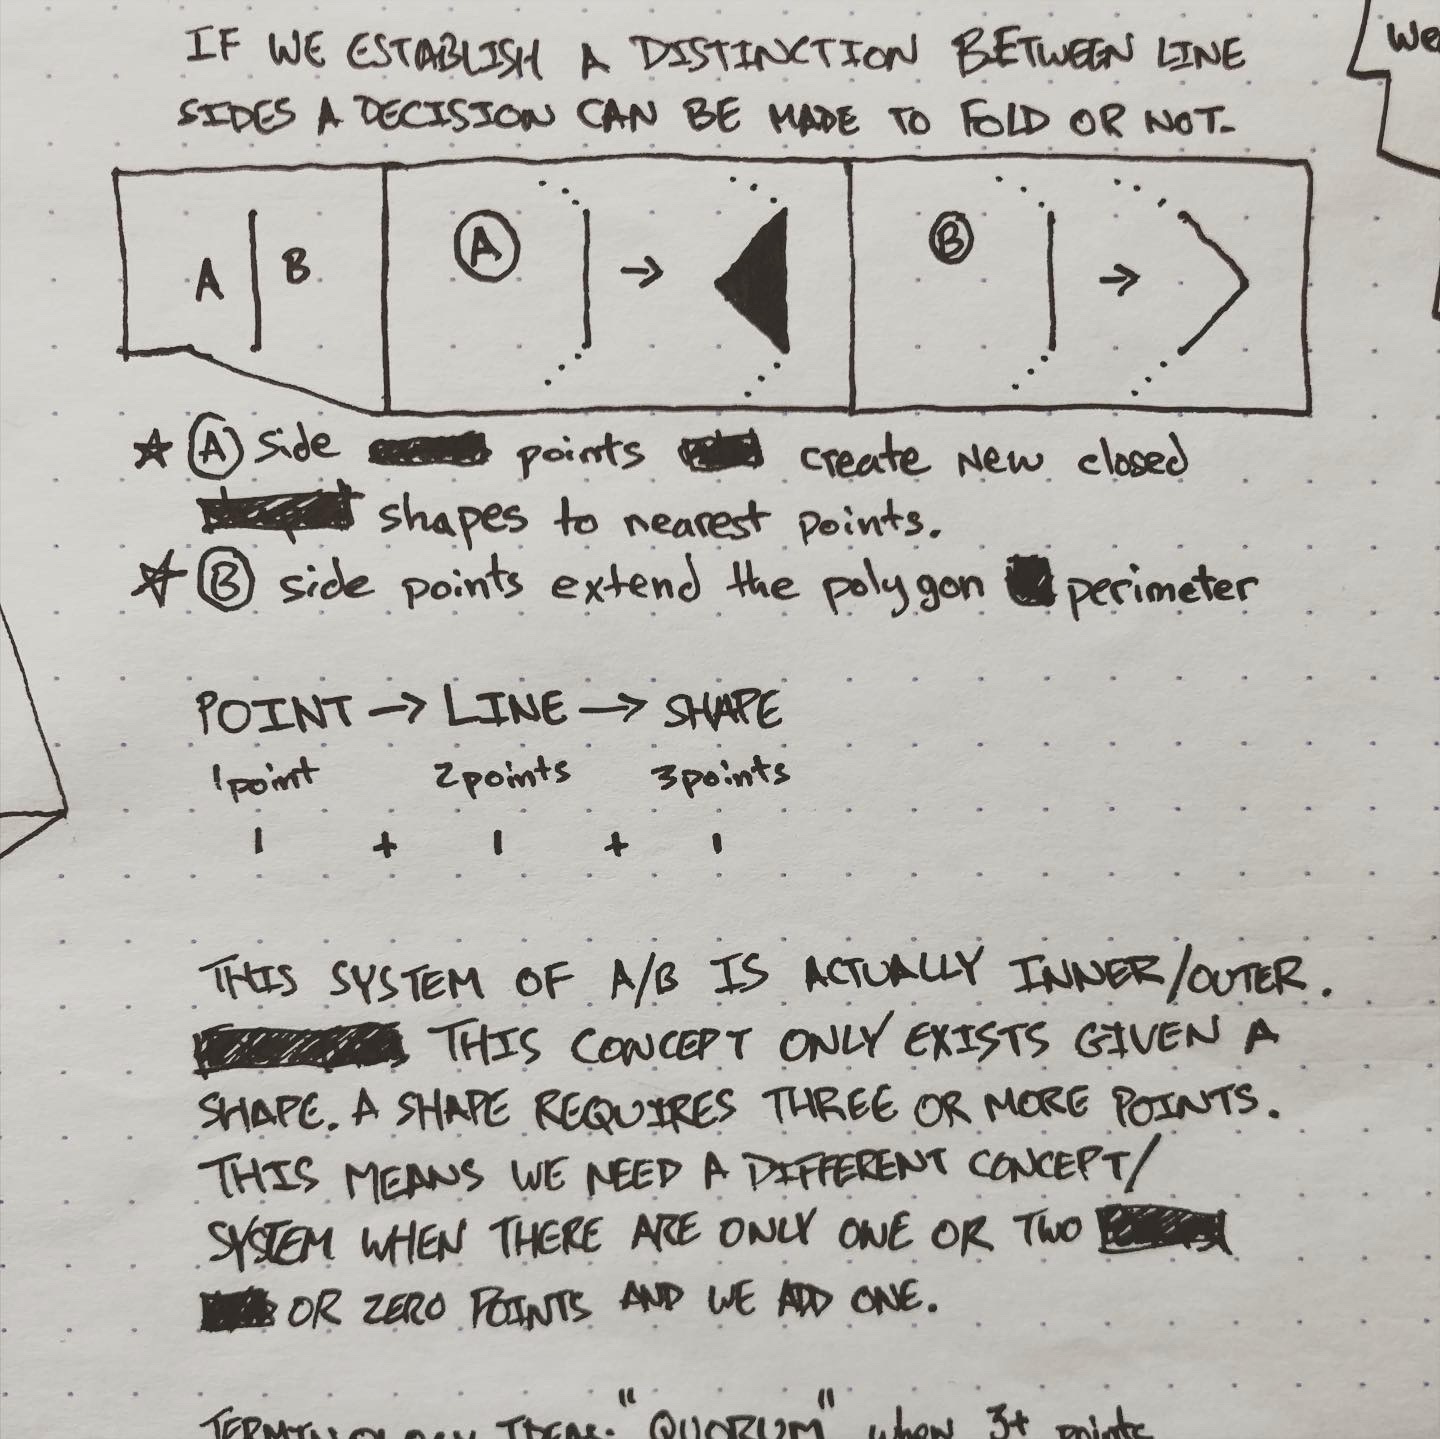 IF WE ESTABLISH A DISTINCTION BETWEEN LINE
SIDES A DECISION CAN BE MADE TO FOLD OR NOT.
We
A B
A →
B →
A side points create new closed
shapes to nearest points.
B side points extend the polygon perimeter
POINT → LINE → SHAPE
1 point 2 points 3 points
1 + 1 + 1
THIS SYSTEM OF A/B IS ACTUALLY INNER/OUTER.
THIS CONCEPT ONLY EXISTS GIVEN A
SHAPE. A SHAPE REQUIRES THREE OR MORE POINTS.
THIS MEANS WE NEED A DIFFERENT CONCEPT/
SYSTEM WHEN THERE ARE ONLY ONE OR TWO
OR ZERO POINTS AND WE ADD ONE.
TERMINOLOGY IDEAS: "QUORUM" when 3+ points